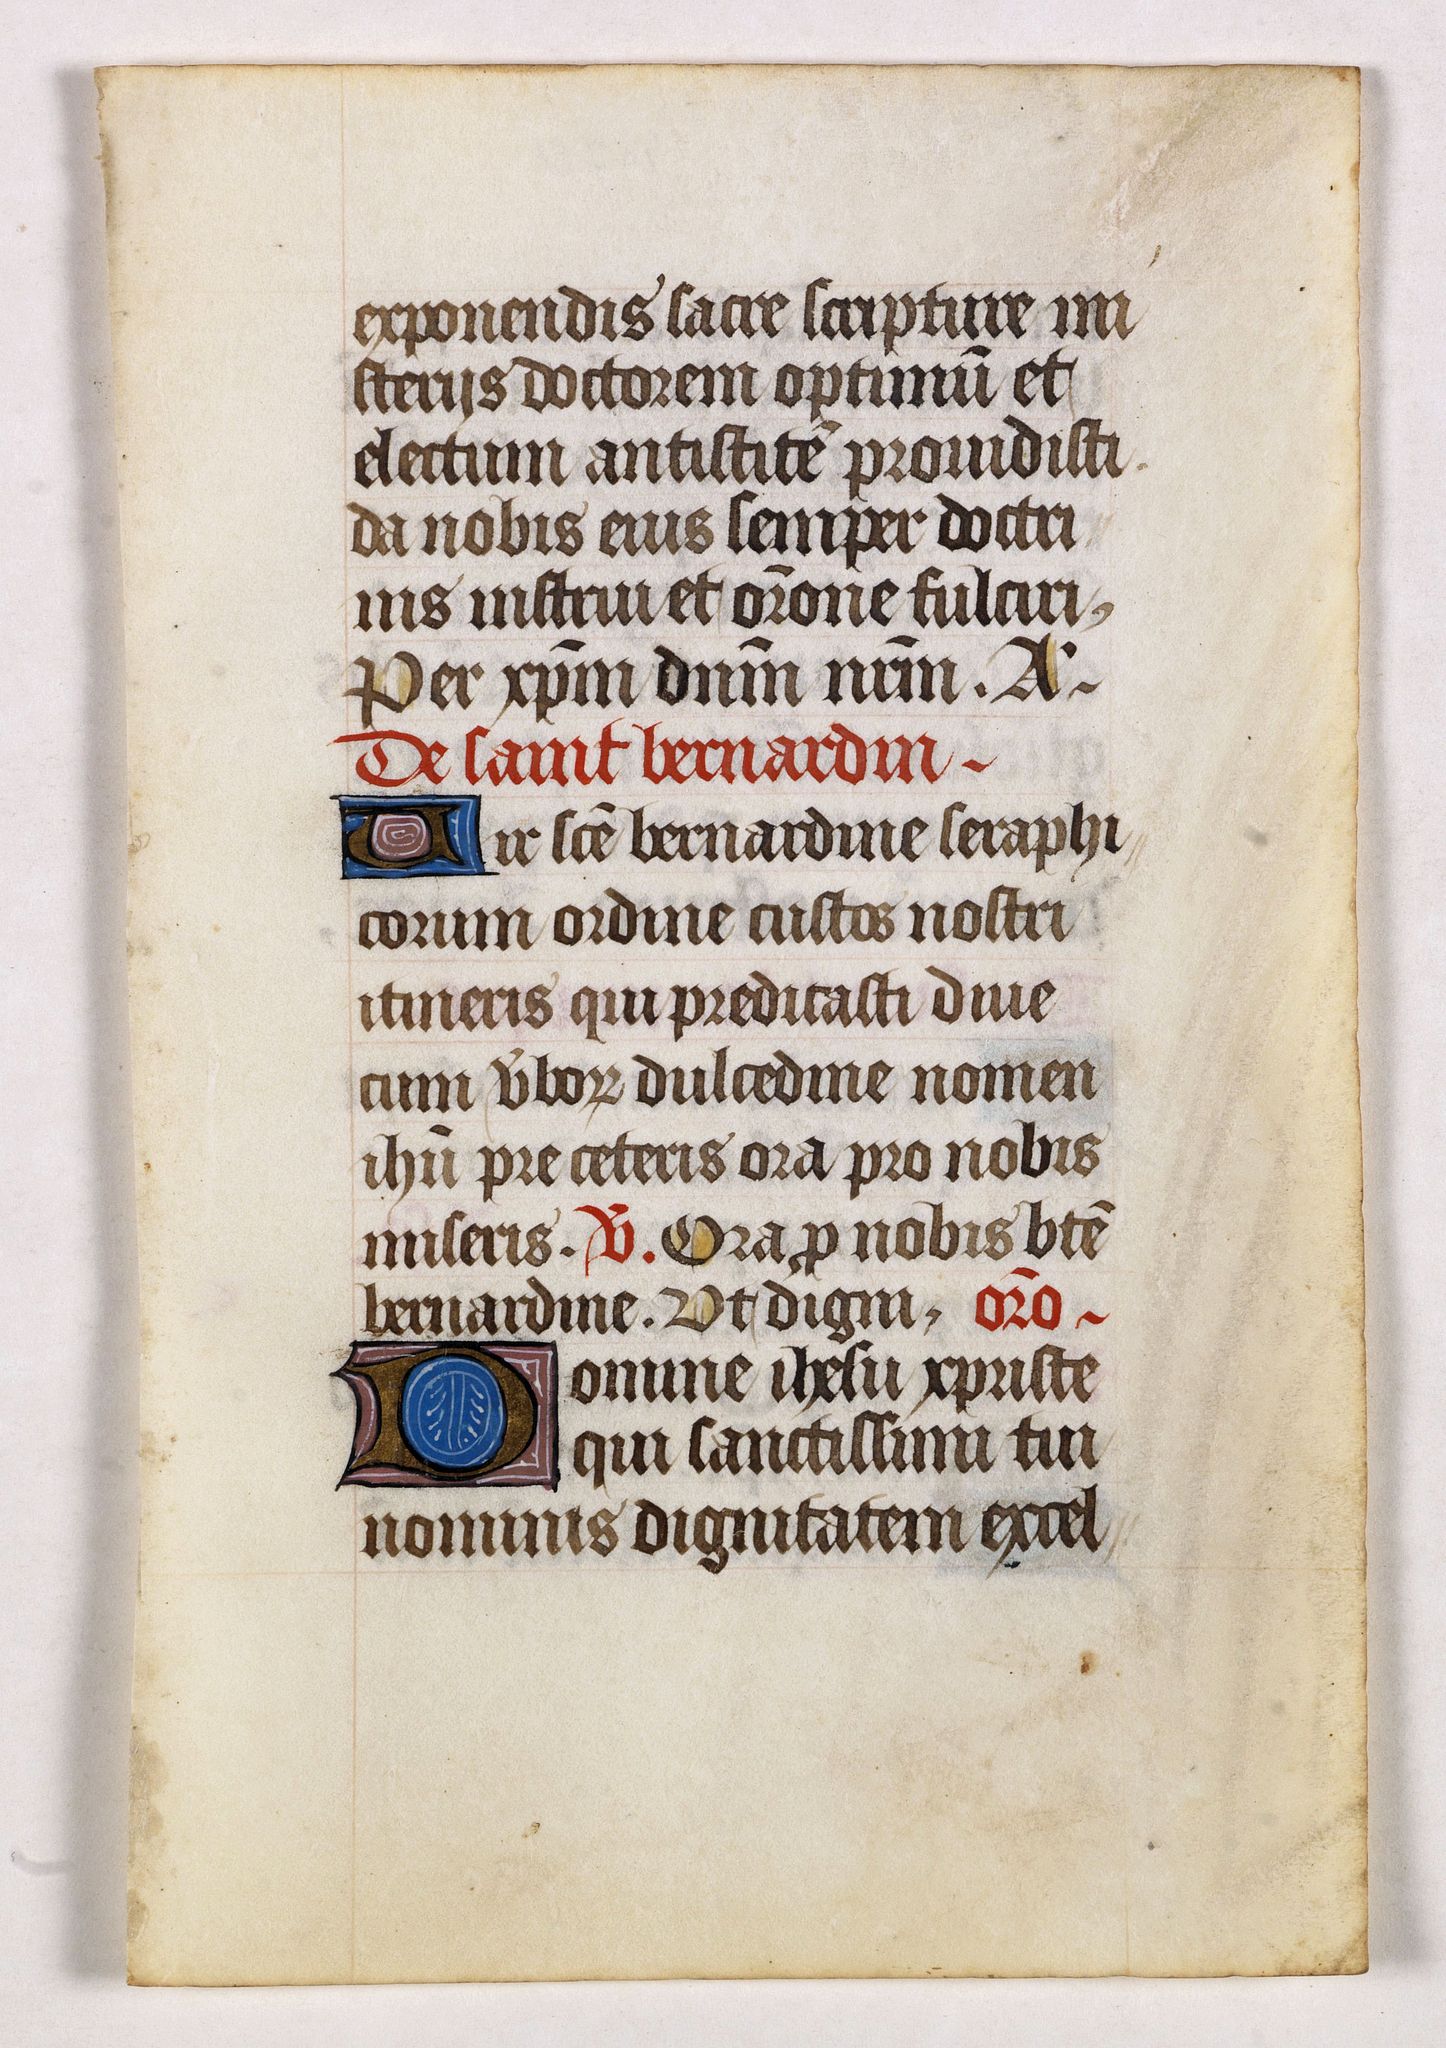 exponendis sacre scripture mi
sterijs doctorem optimū et
electum antistitē prouidisti.
da nobis eius semper doctri
nis instrui et or̄one fulciri,
Per xp̄m dn̄m nr̄m. A.
De saint bernardin
Vir sc̄e bernardine seraphi
corum ordine custos nostri
itineris qui predicasti diue
cum v̄boꝝ dulcedine nomen
ihū pre ceteris ora pro nobis
miseris. ℣. Ora ꝓ nobis bt̄e
bernardine. Vt digni, or̄o
Domine ihesu xpriste
qui sanctissimi tui
nominis dignitatem excel